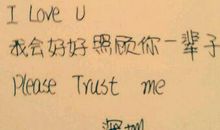 I Love U
我会好好照顾你一辈子
Please Trust me